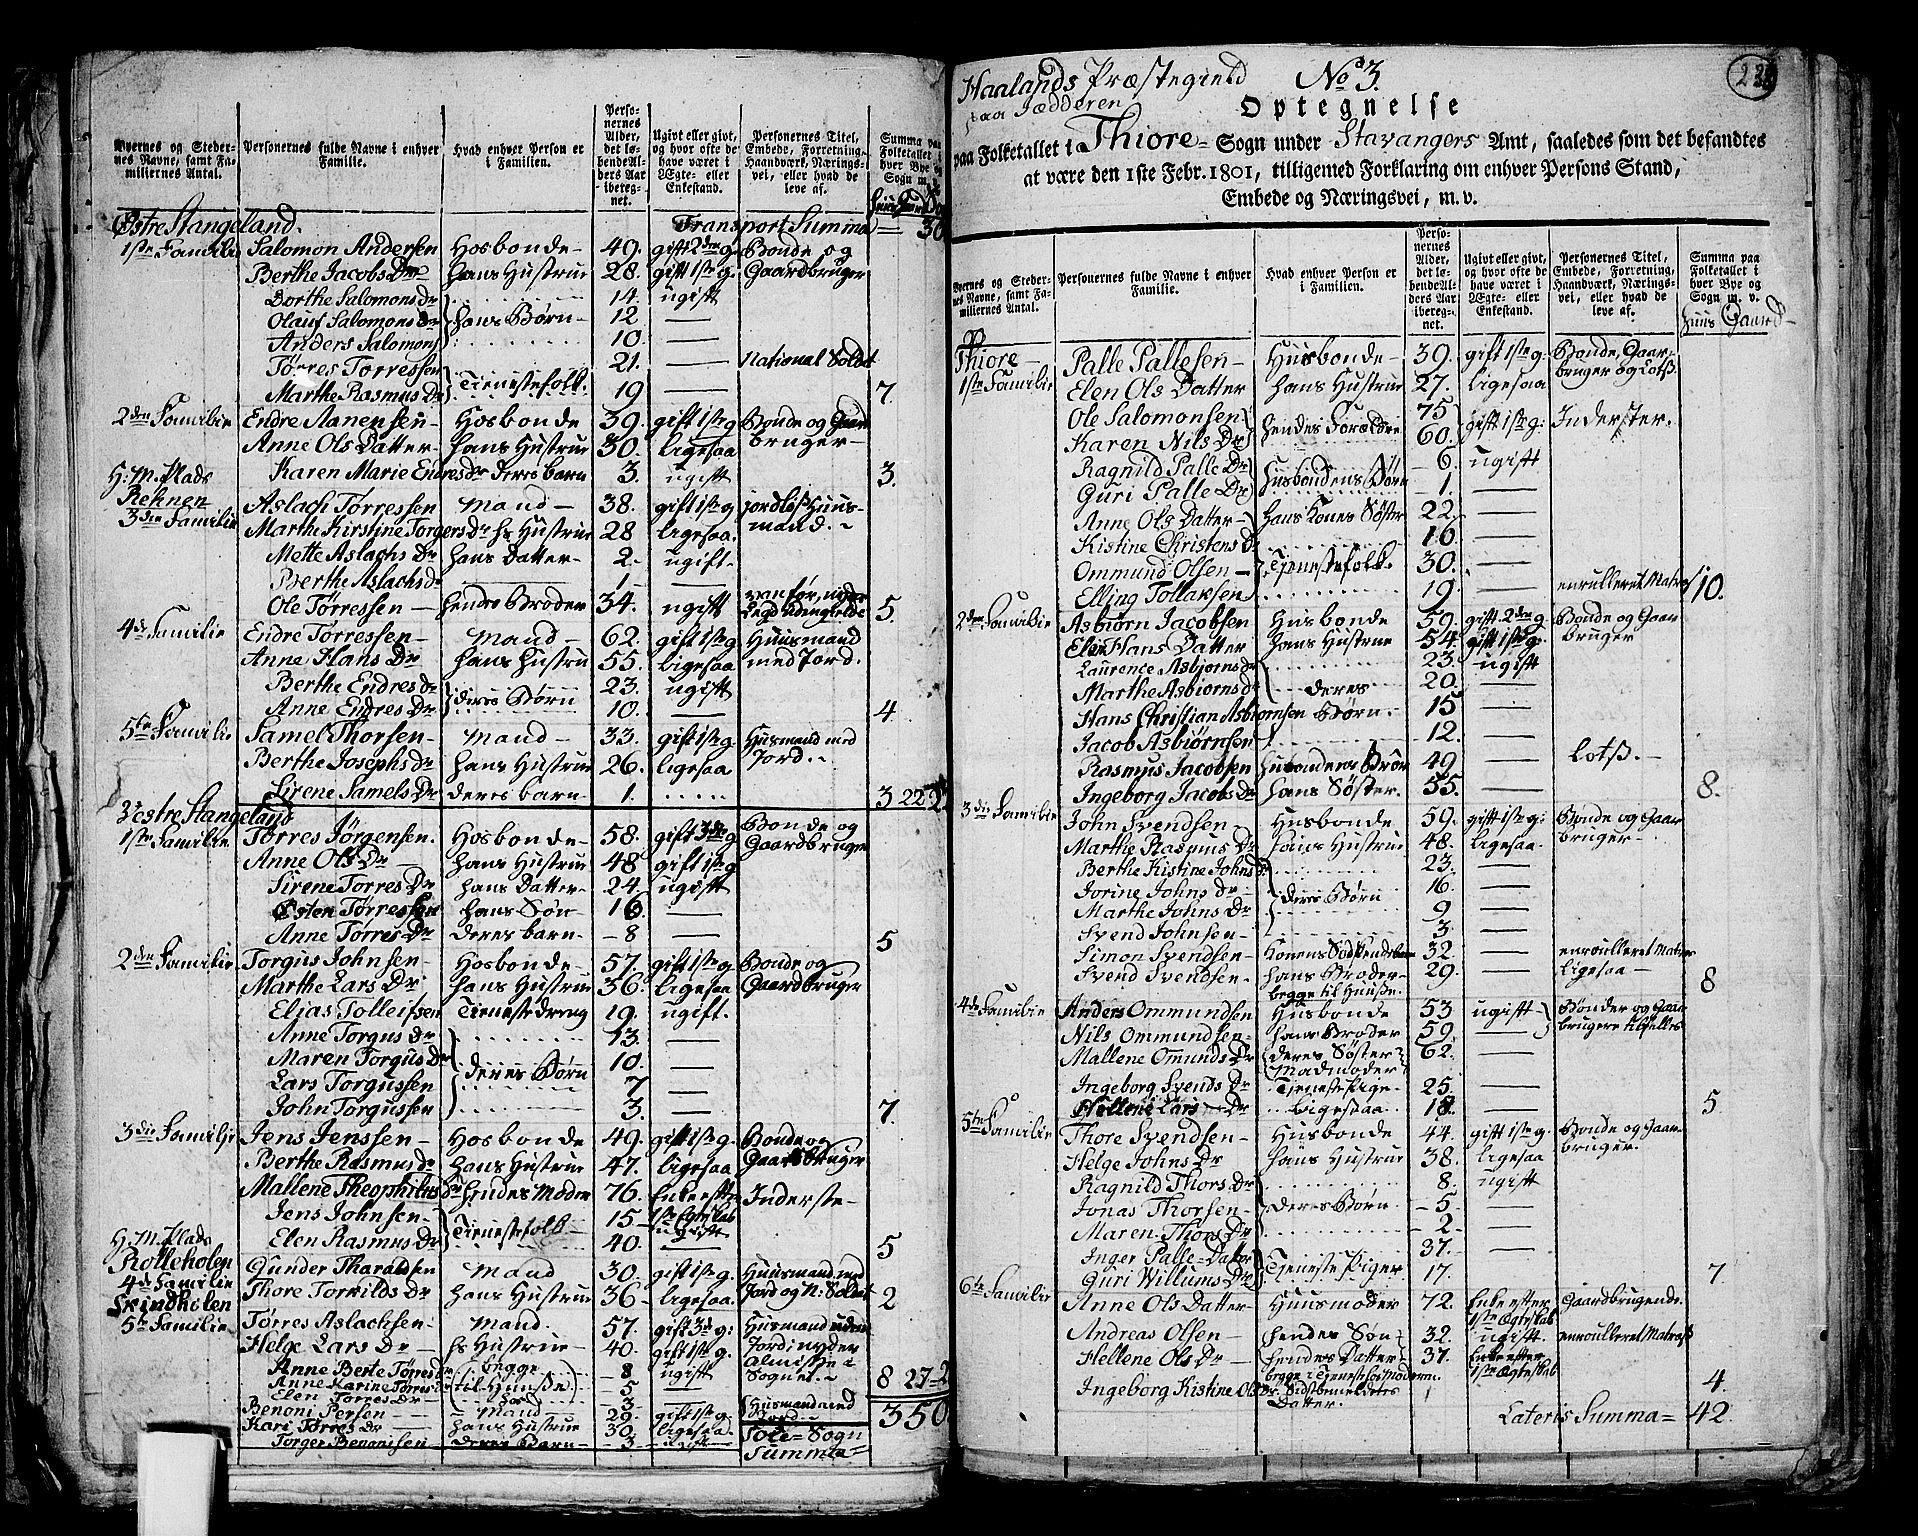 Byernes og Steder- nes Navne, samt Fa- miliernes Antal.
Personernes fulde Navne i enhver Familie.
Hvad enhver Person er i Familien.
Perso- nernes Alder, det lø- bende Al- ders Aar ibereg- net.
Ugivt eller givt, og hvor ofte de have været i Ægte- eller Enkestand.
Personernes Titel, Embede, Forretning, Haandværk, Nærings- vei, eller hvad de leve af.
Summa paa Folketallet i hver Bye og Sogn m. v.
Østre Stangeland. Transport Summa
1ste Familie Salomon Andersen Hosbonde 49. gift 2den g. Bonde og
Berthe Jacobs Dr hans Hustrue 28. gift 1ste g. Gaardbruger
Dorthe Salomons Dr 14. ugift
Olauf Salomons Dr hans Børn 12 —
Anders Salomons 10. —
Tørres Torressen 21. — National Soldat
Marthe Rasmus Dr Tienestefolk. 19 — 7.
2den Familie Endre Aanensen Hosbonde 39. gift 1ste g Bonde og Gaar
Anne Ols Datter hans Hustrue 30. ligesaa bruger
Karen Marie Endres Dr deres barn 3. ugift 3.
H: M. Plads
Rehnen Aslach Tørressen Mand 38. gift 1ste g. jordløs Huus-
3die Familie Marthe Kirstine Torgers Dr hs Hustrue 28 ligesaa. mand.
Mette Aslachs Dr hans Datter 2. ugift.
Berthe Aslachs Dr 1 —
Ole Tørressen hendes Broder 34. ugift 5.
4de Familie Endre Torressen Mand 62. gift 1ste g. Huusmand
Anne Hans Dr hans Hustru 55. ligesaa med Jord.
Berthe Endres Dr deres Børn 23. ugift
Anne Endres Dr 10. — 4
5te Familie Samel Thorsen Mand 33. gift 1ste g. Husmand med
Berthe Josephs Dr hans Hustrue 26. ligesaa Jord.
Sirene Samels Dr deres barn 1. 3 22
Vestre Stangeland
1ste Familie Tørres Jørgensen Hosbonde 58. gift 3die g Bonde og
Anne Ols Dr hans Hustrue 48 gift 1ste g Gaardbruger
Sirene Torres Dr hans Datter 24. ugift
Østen Tørressen hans Søn 16. —
Anne Tørres Dr deres barn 8 — 5
2den Familie Torgus Johnsen Hosbonde 57. gift 1ste g Bonde og
Marthe Lars Dr hans Hustrue 36. ligesaa Gaardbruger
Elias Tolleifsen Tienestedreng 19. ugift.
Anne Torgus Dr 13. —
Maren Torgus Dr deres Børn 10. —
Lars Torgussen 7 —
John Torgussen 3. — 7.
3die Familie Jens Jenssen Hosbonde 49. gift 1ste g. Bonde og
Berthe Rasmus Dr hans Hustrue 47. ligesaa Gaardbruger
Mallene Theophilus Dr hendes Moder 76. Enke efter 1ste Egteskab Inderste
Jens Johnsen Tienestefolk 15 ugift
Elen Rasmus Dr 40. — 5
H. M. Plads
Rolleholen Gunder Tharaldsen Mand 30. gift 1ste g. Huusmand med
4de Familie Thore Torkilds Dr hans Hustrue 36 ligesaa. Jord og N: Soldat 2
Skindholen
5te Familie Tørres Aslachsen Mand. 57. gift 3die g: Husmand uden
Helge Lars Dr hs Hustrue 40. gift 1ste g. Jord nyder
Anne Berte Tørres Dr begge 8 ugift Almisse i
Anne Marine Torres Dr til Huuse 5 — Sognet. 8 27
Elen Torres Dr 3 —
Benoni Persen Mand 29. gift 1ste g. Husmand med Jord
Kari Torres Dr hans Hustrue 30. ligesaa
Torger Benonisen deres Barn 3. ugift Sole Sogn Summa 350
Haalands Præstegield No 3.
paa Jædderen
Optegnelse
paa Folketallet i Thiore Sogn under Stavangers Amt, saaledes som det befandtes
at være den 1ste Febr. 1801, tilligemed Forklaring om enhver Persons Stand,
Embede og Næringsvei, m. v.
Byernes og Steder- nes Navne, samt Fa- miliernes Antal.
Personernes fulde Navne i enhver Familie.
Hvad enhver Person er i Familien.
Perso- nernes Alder, det lø- bende Al- ders Aar ibereg- net.
Ugivt eller givt, og hvor ofte de have været i Ægte- eller Enkestand.
Personernes Titel, Embede, Forretning, Haandværk, Nærings- vei, eller hvad de leve af.
Summa paa Folketallet i hver Bye og Sogn m. v.
Huus Gaard
Thiore Palle Pallesen Husbonde 39. gift 1ste g: Bonde, Gaar-
1ste Familie Elen Ols Datter hans Hustrue 27. ligesaa bruger og Lotss.
Ole Salomonsen hendes Forældre 75 gift 1ste g: Inderster.
Karen Nils Dr 60.
Ragnild Palle Dr Husbondens Børn 6. ugift
Guri Palle Dr 1. —
Anne Ols Datter hans Kones Søster 22. —
Kistine Christens Dr 16 —
Ommund Olsen Tjenestefolk 30. —
Elling Tollaksen 19. — enrulleret Matros 10.
2den Familie Asbiørn Jacobsen Husbonde 59. gift 2den g Bonde og Gaar
Elen Hans Datter hans Hustrue 54. gift 1ste g. bruger
Laurence Asbjorns Dr 23. ugift
Marthe Asbiorns Dr deres 20. —
Hans Christian Asbiornsen Børn. 15 —
Jacob Asbiørnsen 12. —
Rasmus Jacobsen Husbondens Bror 49 — Lotss.
Ingeborg Jacobs Dr hans Søster. 55. — 8.
3die Familie John Svendsen Husbonde 59. gift 1ste g: Bonde og Gaar
Marthe Rasmus Dr hans Hustrue 48. ligesaa. bruger
Berthe Kistine Johns Dr 23. —
Jorine Johns Dr deres Børn 16. —
Marthe Johns Dr 9 —
Svend Johnsen 3. —
Simon Svendsen Konens Sødskendebarn 32. — enroulleret Matros
Svend Svendsen hans Broder begge til Huuse. 29. — ligesaa 8
4de Familie Anders Ommundsen Husbonde 53 ugift Bønder og Gaar
Nils Ommundsen hans Broder 59. — brugere tilfælles
Mallene Omunds Dr deres Søster Madmoder 62. —
Ingeborg Svends Dr Tjeneste Pige 25. —
Hellene Lars Dr ligesaa 18. — 5
5te Familie Thore Svendsen Husbonde 44. gift 1ste g. Bonde og Gaar
Helge Johns Dr hans Hustrue 38. ligesaa bruger.
Ragnild Thors Dr 8. ugift
Jonas Thorsen deres Børn 5 —
Maren Thors Dr 2 —
Inger Palle Datter Tjeneste Piger 37. —
Guri Willums Dr 17. 7
6te Familie Anne Ols Datter Huusmoder 72. Enke efter 1ste Egteskab Gaardbrugende.
Andreas Olsen hendes Søn 32. ugift. enroulleret Matros
Hellene Ols Dr hendes Datter 37. Enke efter 1ste Egteskab
begge i Tieneste hos Moderen.
Ingeborg Kistine Ols Dr Sidstbemeldtes Datter. 1 4.
Lateris Summa 42.